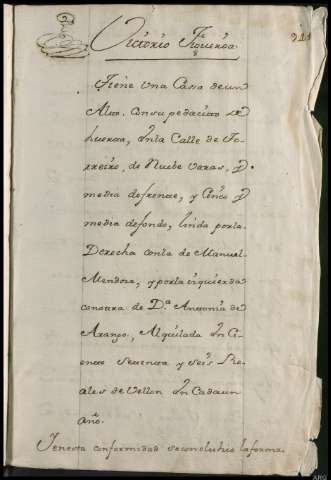 211
Victorio Figueroa.
Tiene una Casa de un
Alto, con su pedacito de
huerta, en la Calle de To-
rreiro, de Nuebe varas, y
media de frente, y Cinco y
media de fondo, linda por la
Derecha con la de Manuel
Mendoza, y por la izquierda
con otra de D.ª Antonia de
Arango, Alquilada en Ci-
ento setenta y seis Re-
ales de Vellon en Cada un
año.
Y en esta conformidad se concluhio la forma